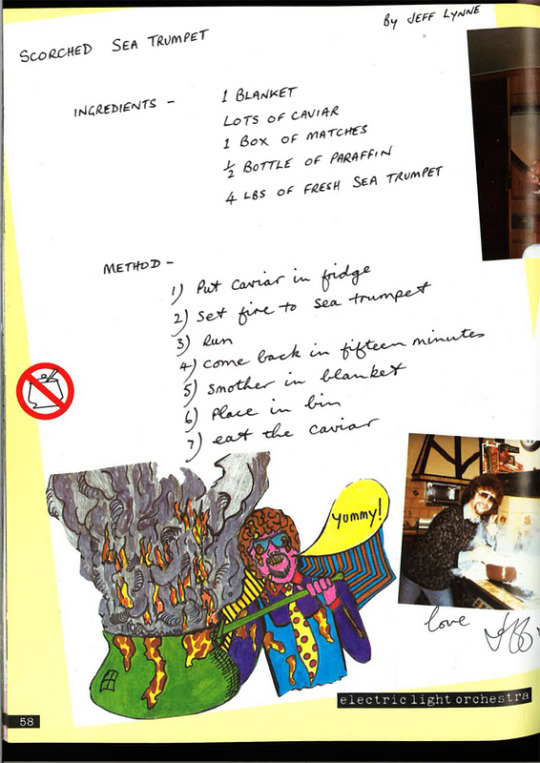 SCORCHED SEA TRUMPET
By JEFF LYNNE
INGREDIENTS -
1 BLANKET
LOTS OF CAVIAR
1 BOX OF MATCHES
½ BOTTLE OF PARAFFIN
4 LBS OF FRESH SEA TRUMPET
METHOD -
1) Put caviar in fridge
2) Set fire to sea trumpet
3) Run
4) come back in fifteen minutes
5) smother in blanket
6) Place in bin
7) eat the caviar
YUMMY!
love Jeff
electric light orchestra
58